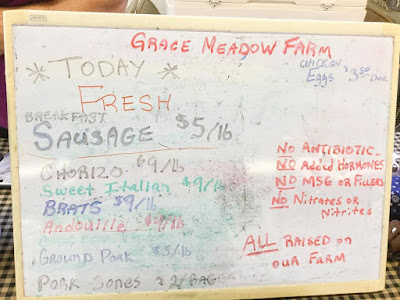 GRACE MEADOW FARM
* TODAY *
CHICKEN
Eggs $3.50 Doz
FRESH
BREAKFAST
SAUSAGE $5/lb
CHORIZO $9/lb
Sweet Italian $9/lb
BRATS $9/lb
Andouille $9/lb
Ground Pork $5/lb
Pork Bones $2/BAG
NO ANTIBIOTIC
NO Added HORMONES
NO MSG or Fillers
NO Nitrates or
Nitrites
ALL RAISED on
OUR FARM